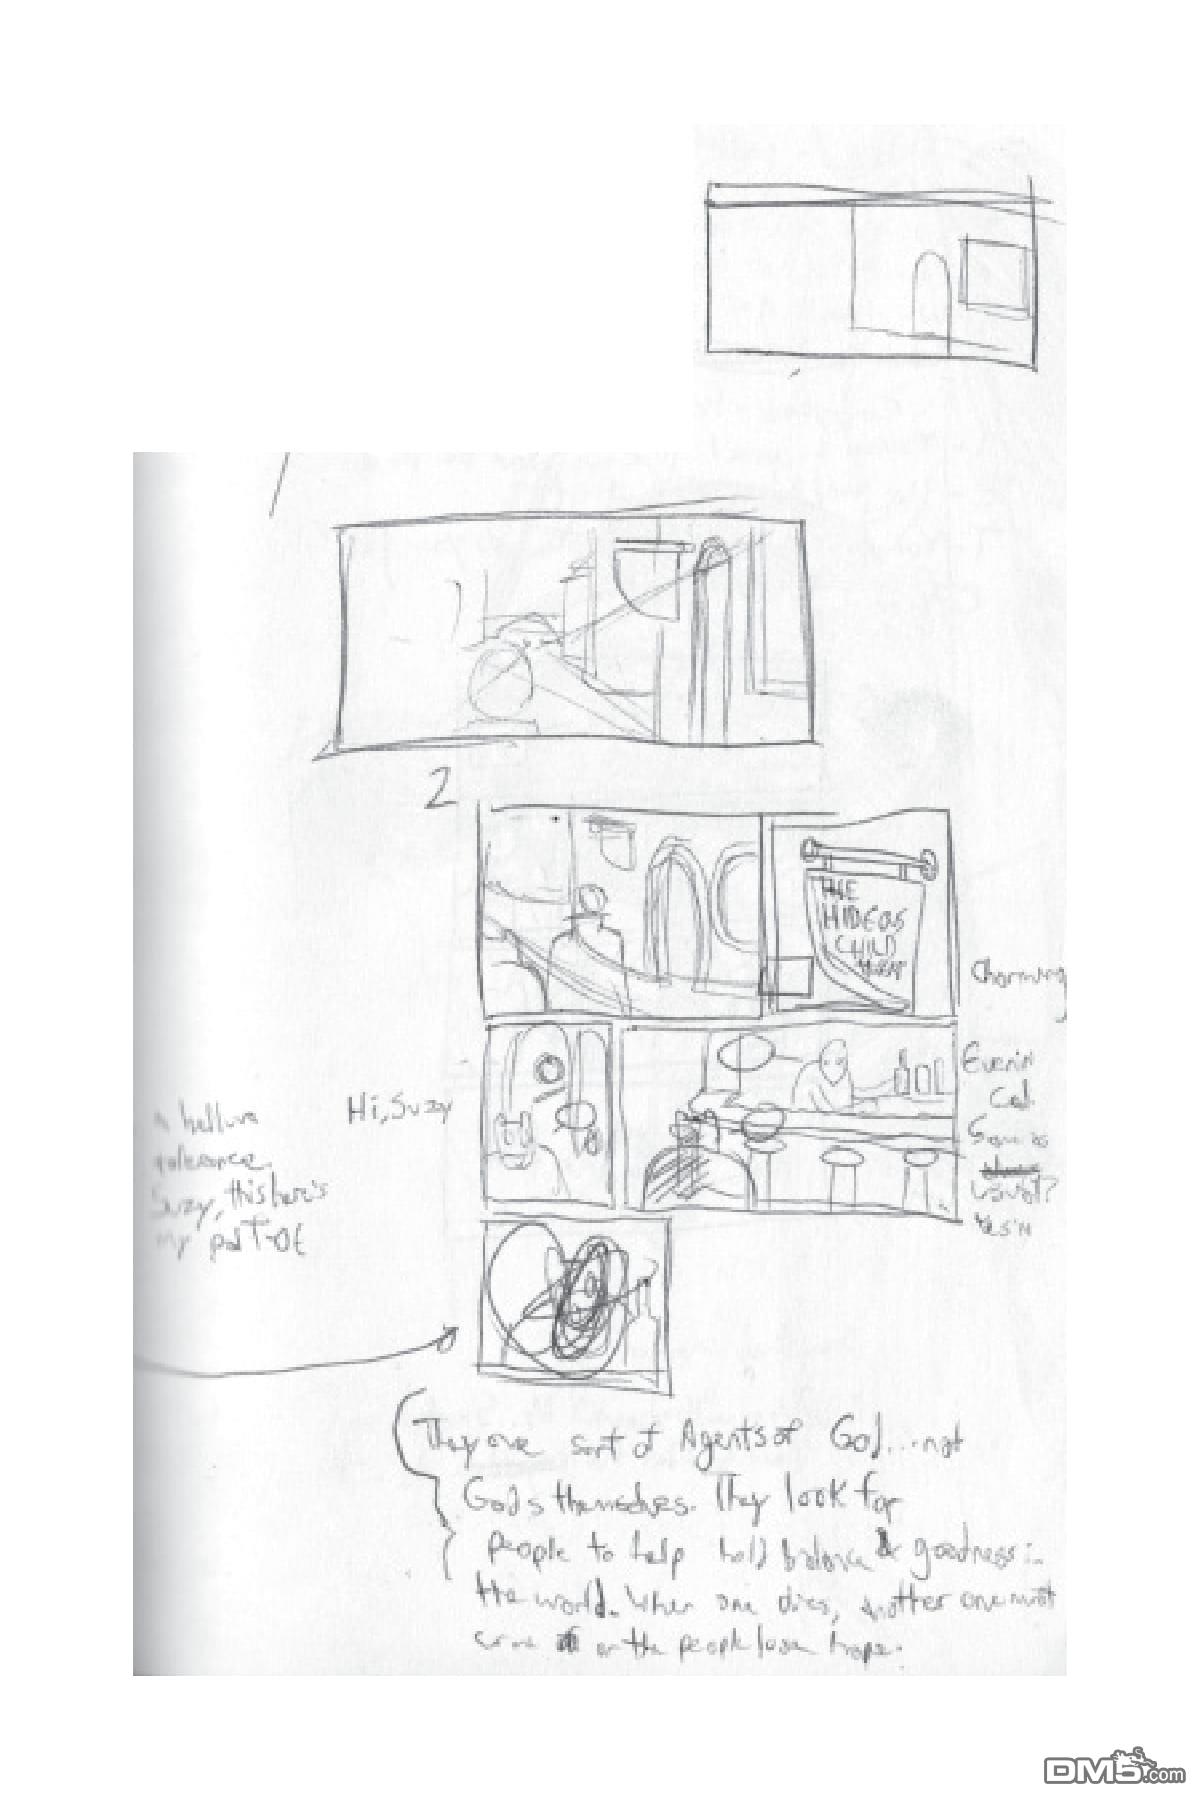 2
THE
HIDEOS
CHILD
Charming
Hi, Suzy
Evenin
Ced.
Same as
usual?
Yes'm
a helluva
tolerance.
Suzy, this here's
my
They are sort of Agents of God...not
Gods themselves. They look for
people to help hold balance & goodness in
the world. When one dies, another one must
come or the people lose hope.
DM5.com